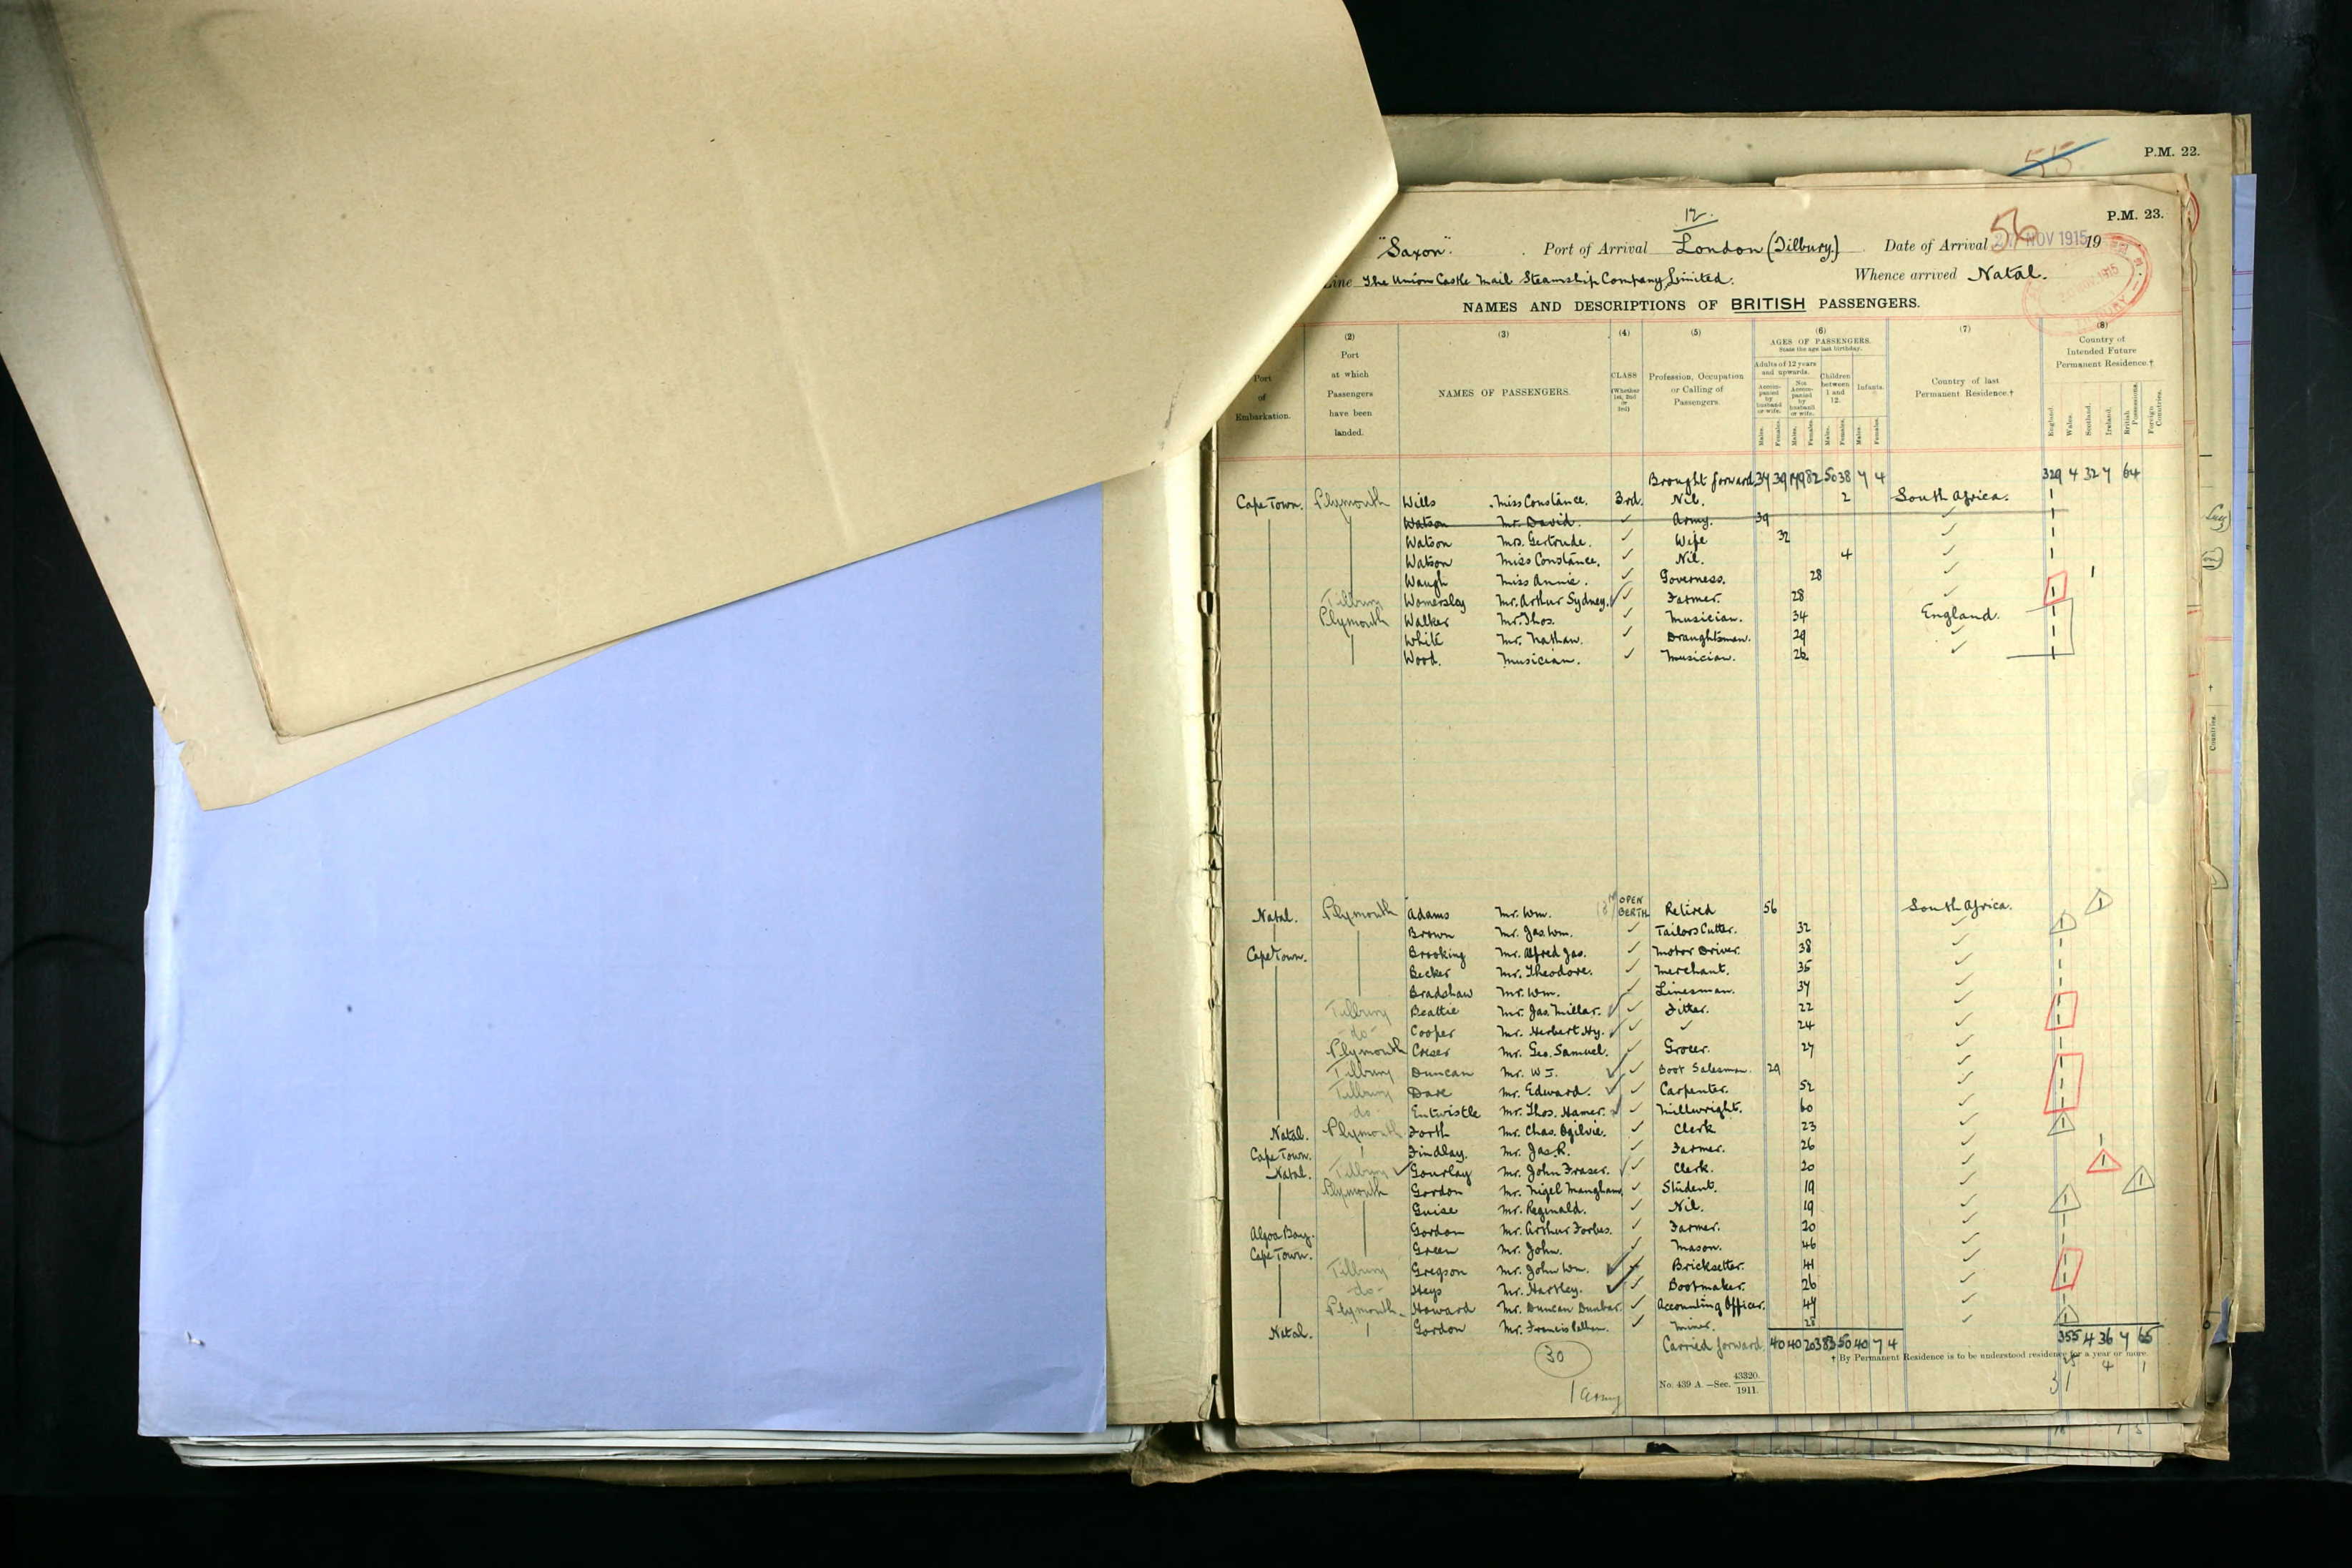 55
P.M. 22.
12.
56
P.M. 23.
"Saxon". Port of Arrival London (Tilbury.) Date of Arrival NOV 1915 19
Line The Union Castle Mail Steamship Company Limited. Whence arrived Natal.
NAMES AND DESCRIPTIONS OF BRITISH PASSENGERS.
Port of Embarkation.
(2) Port at which Passengers have been landed.
(3) NAMES OF PASSENGERS.
(4) CLASS (Whether 1st, 2nd or 3rd)
(5) Profession, Occupation or Calling of Passengers.
(6) AGES OF PASSENGERS. State the age last birthday.
Adults of 12 years and upwards. Accompanied by husband or wife. Not Accompanied by husband or wife. Children between 1 and 12. Infants.
Males. Females. Males. Females. Males. Females. Males. Females.
(7) Country of last Permanent Residence.†
(8) Country of Intended Future Permanent Residence.†
England. Wales. Scotland. Ireland. British Possessions. Foreign Countries.
Brought forward 34 39 179 82 50 38 7 4 329 4 32 7 64
Cape Town. Plymouth Wills Miss Constance. 3rd. Nil. 2 South Africa. 1
Watson Mr. David. ✓ Army. 39 ✓
Watson Mrs. Gertrude. ✓ Wife 32 ✓ 1
Watson Miss Constance. ✓ Nil. 4 ✓ 1
Waugh Miss Annie. ✓ Governess. 28 ✓ 1
Tilbury Womersley Mr. Arthur Sydney. ✓ Farmer. 28 ✓ 1
Plymouth Walker Mr. Thos. ✓ Musician. 34 England. 1
White Mr. Nathan. ✓ Draughtsman. 29 ✓ 1
Wood. Musician. ✓ Musician. 26 ✓ 1
Natal. Plymouth Adams Mr. Wm. OPEN BERTH Retired 56 South Africa. 1
Brown Mr. Jas. Wm. ✓ Tailors Cutter. 32 ✓ 1
Cape Town. Brooking Mr. Alfred Jas. ✓ Motor Driver. 38 ✓ 1
Becker Mr. Theodore. ✓ Merchant. 35 ✓ 1
Bradshaw Mr. Wm. ✓ Linesman. 37 ✓ 1
Tilbury Beattie Mr. Jas. Millar. ✓ Fitter. 22 ✓ 1
-do- Cooper Mr. Herbert Hy. ✓ ✓ 24 ✓ 1
Plymouth Creser Mr. Geo. Samuel. ✓ Grocer. 27 ✓ 1
Tilbury Duncan Mr. W J. ✓ Boot Salesman. 29 ✓ 1
Tilbury Dare Mr. Edward. ✓ Carpenter. 52 ✓ 1
do Entwistle Mr. Thos. Hamer. ✓ Millwright. 60 ✓ 1
Natal. Plymouth Forth Mr. Chas. Ogilvie. ✓ Clerk 23 ✓ 1
Cape Town. Findlay. Mr. Jas. R. ✓ Farmer. 26 ✓ 1
Natal. Tilbury ✓ Gourlay Mr. John Fraser. ✓ Clerk. 20 ✓ 1
Plymouth Gordon Mr. Nigel Mangham ✓ Student. 19 ✓ 1
Guise Mr. Reginald. ✓ Nil. 19 ✓ 1
Algoa Bay. Gordon Mr. Arthur Forbes. ✓ Farmer. 20 ✓ 1
Cape Town. Green Mr. John. ✓ Mason. 46 ✓ 1
Tilbury Gregson Mr. John Wm. ✓ Bricksetter. 41 ✓ 1
-do- Heys Mr. Hartley. ✓ Bootmaker. 26 ✓ 1
Plymouth. Howard Mr. Duncan Dunbar. ✓ Accounting Officer. 47 ✓ 1
Natal. Gordon Mr. Francis ✓ Miner. 25 ✓ 1
30 Carried forward 40 40 203 83 50 40 7 4 355 4 36 7 65
† By Permanent Residence is to be understood residence for a year or more.
25 4 1
31
1 Army
No. 439 A.—Sec. 43320. 1911.
Countries.